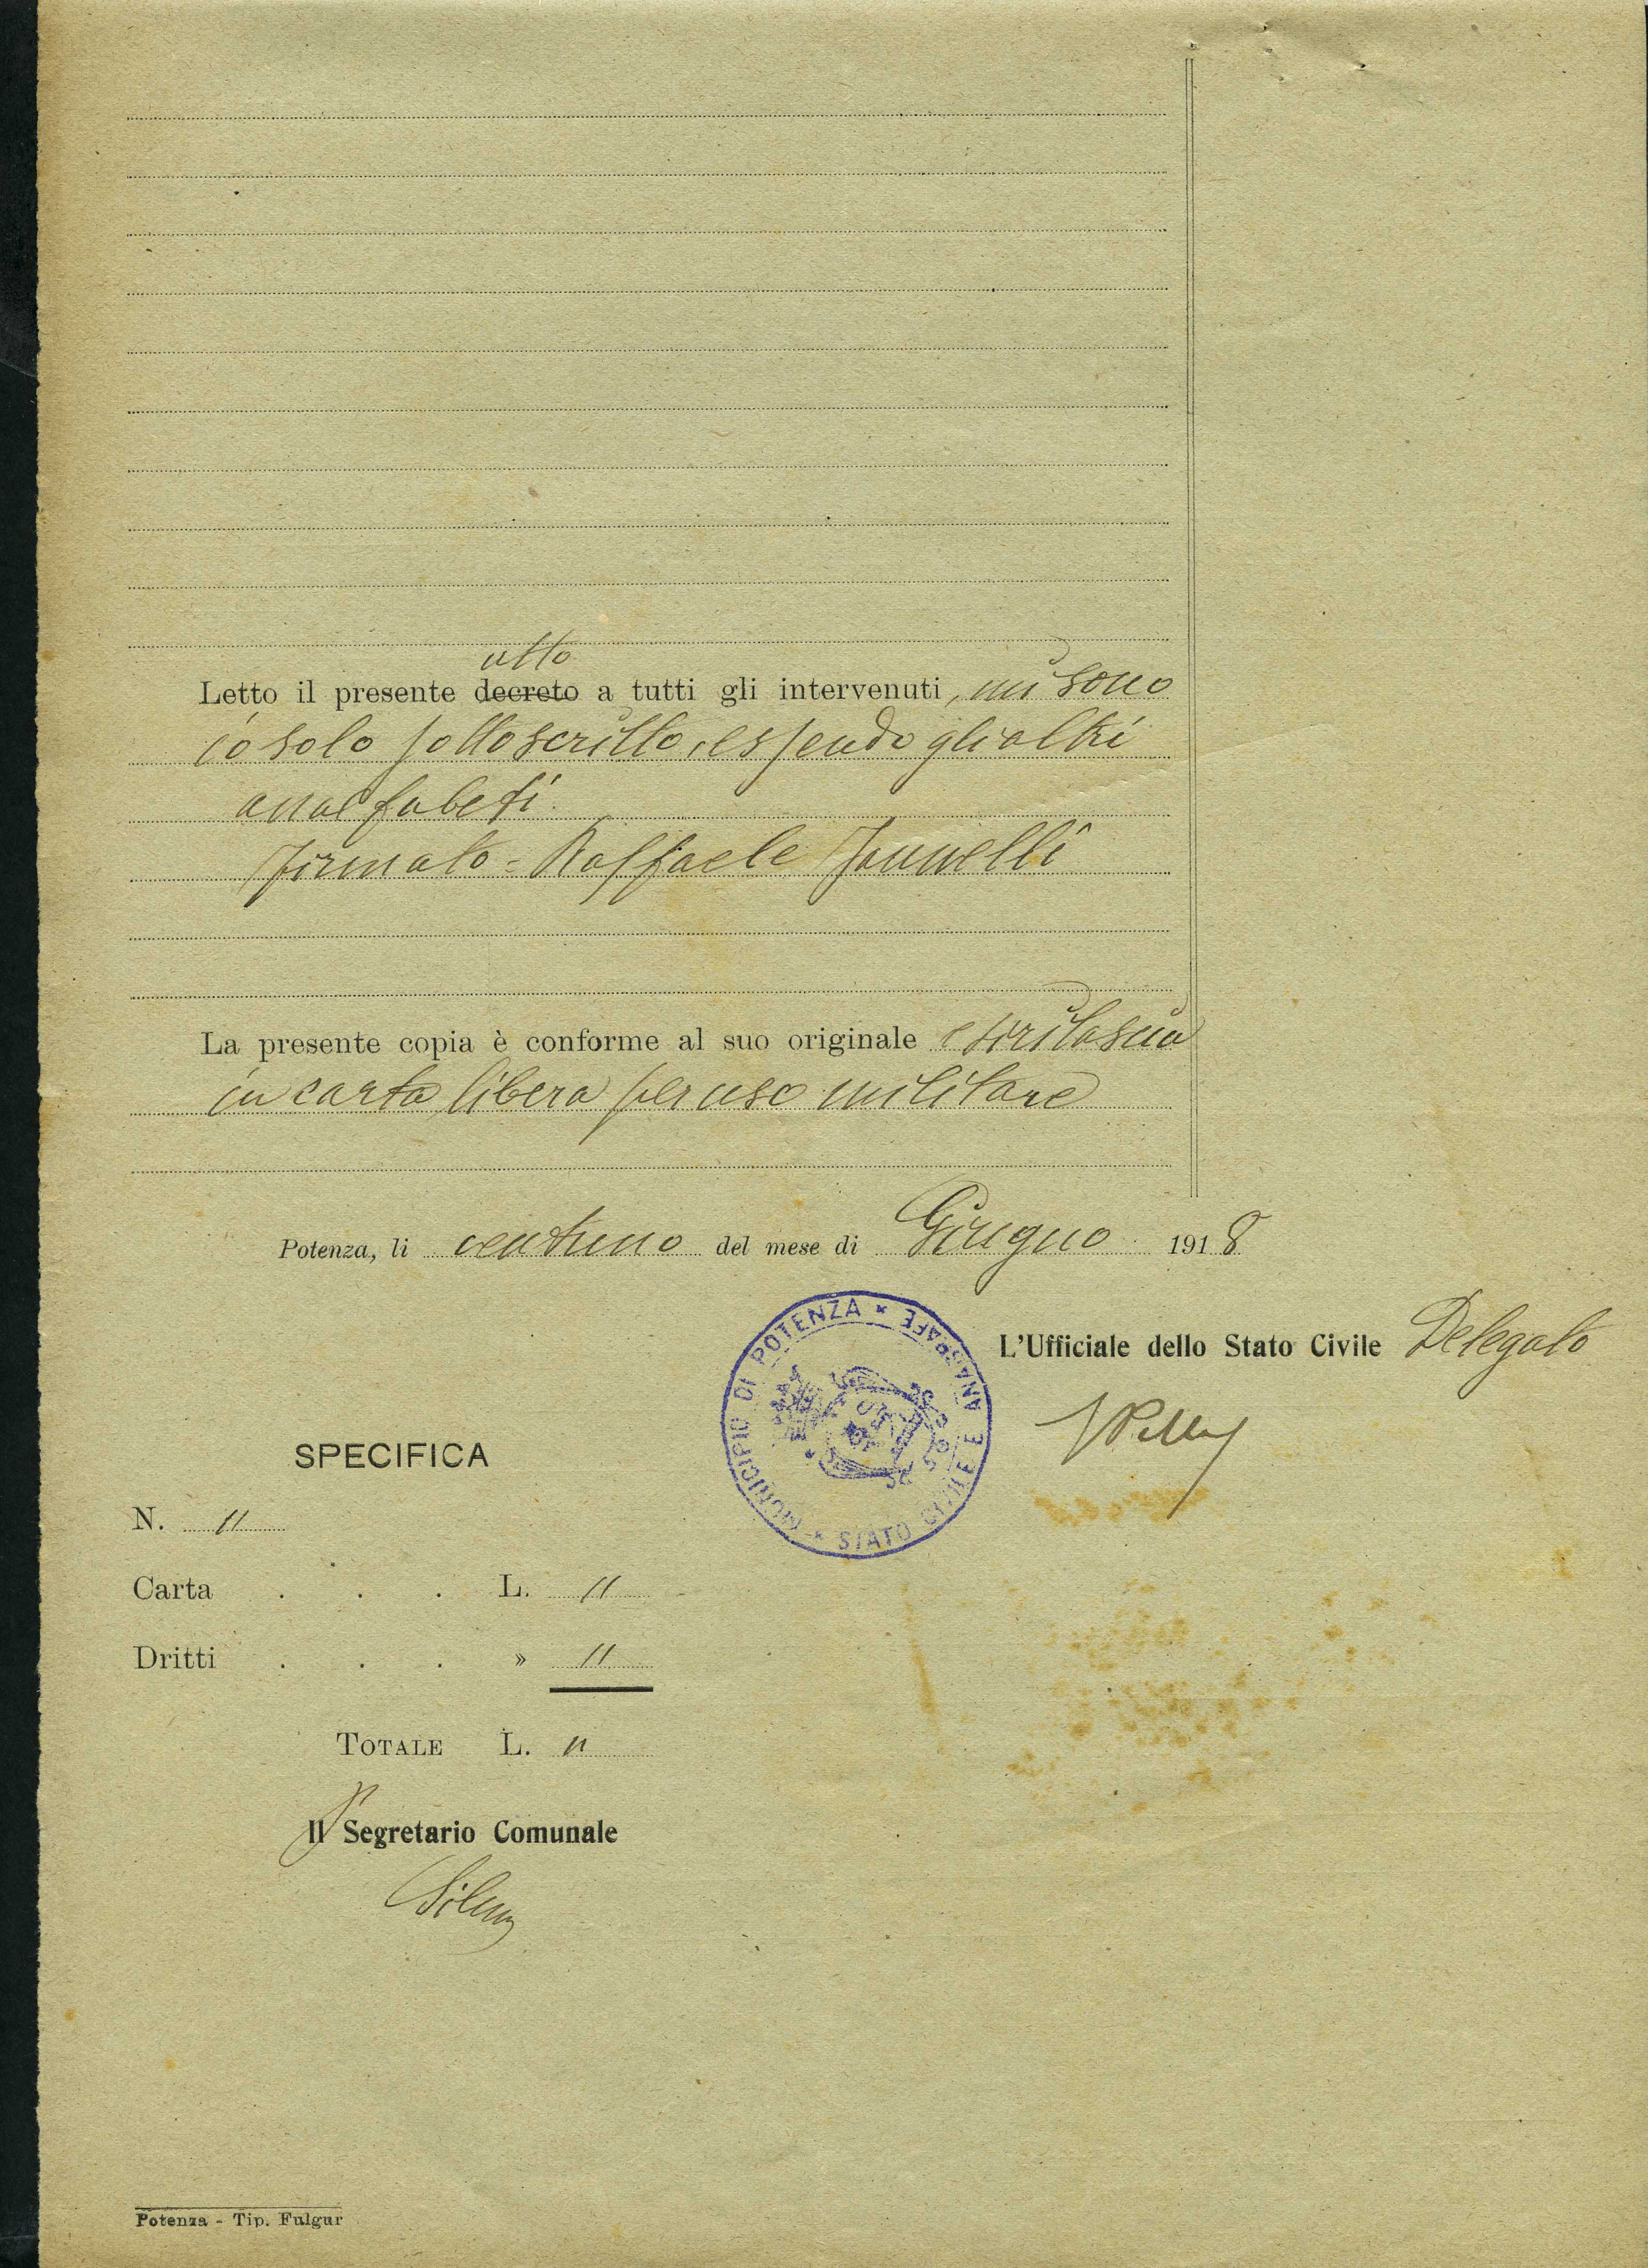 atto
Letto il presente decreto a tutti gli intervenuti, mi sono
io solo sottoscritto, essendo gli altri
analfabeti.
Firmato = Raffaele Iannelli
La presente copia è conforme al suo originale e si rilascia
in carta libera per uso militare
Potenza, li ventuno del mese di Giugno 1918
MUNICIPIO DI POTENZA * STATO CIVILE E ANAGRAFE *
L'Ufficiale dello Stato Civile Delegato
SPECIFICA
N. "
Carta . . . L. "
Dritti . . . » "
TOTALE L. "
Il Segretario Comunale
Potenza - Tip. Fulgur